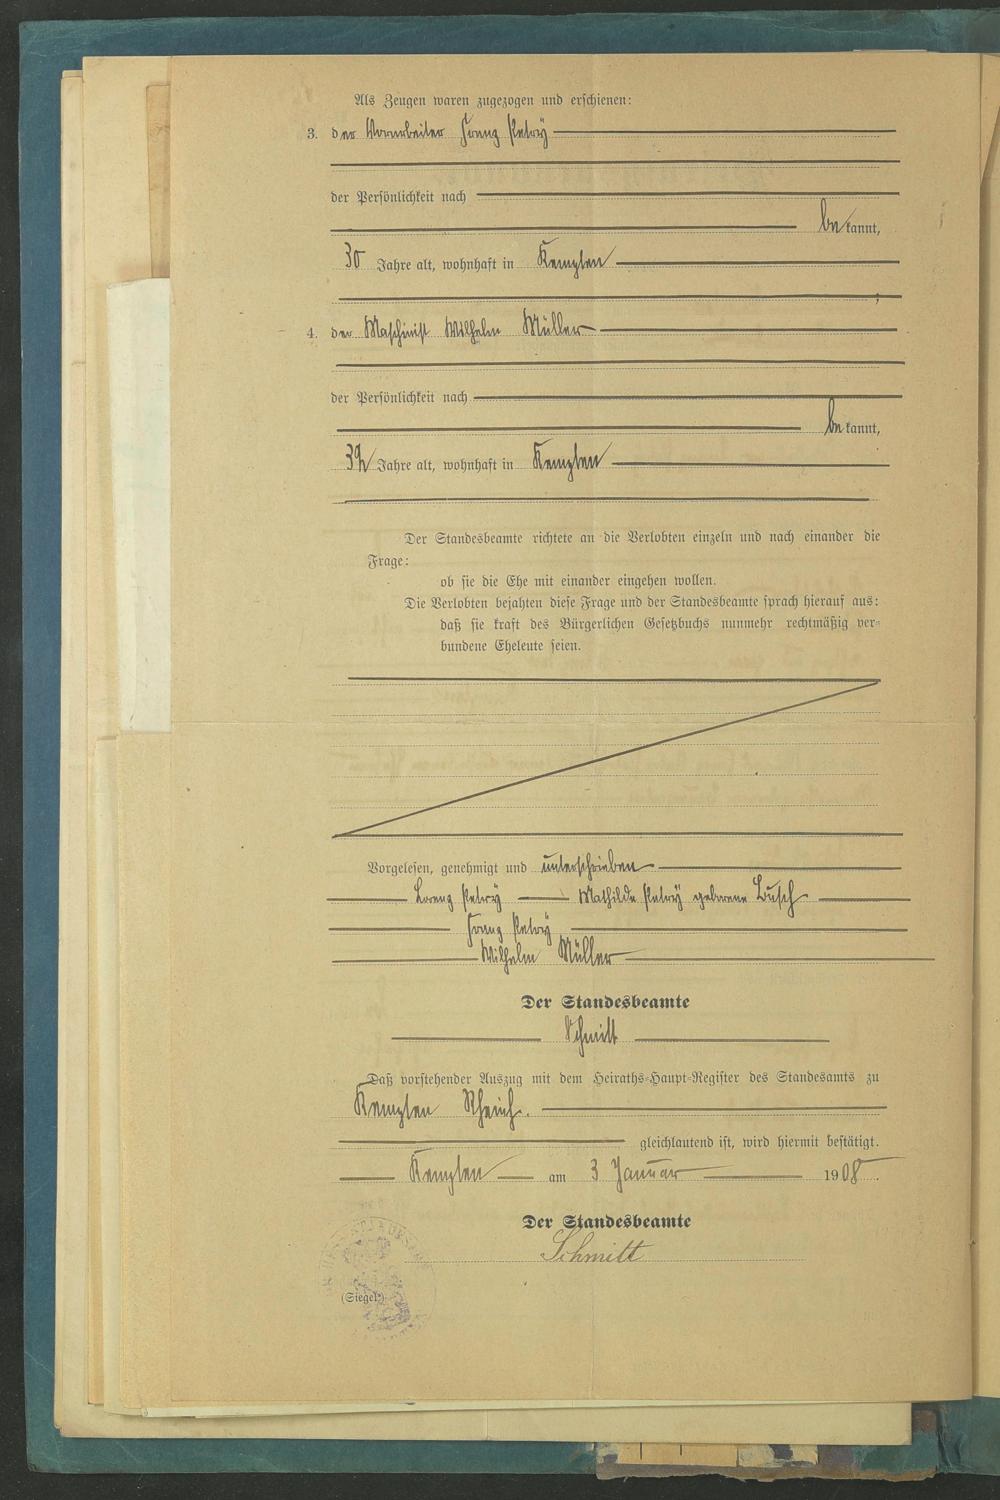 Als Zeugen waren zugezogen und erschienen:
3. der Vorarbeiter Franz Petry
der Persönlichkeit nach
bekannt,
30 Jahre alt, wohnhaft in Kempten
;
4. der Maschinist Wilhelm Müller
der Persönlichkeit nach
bekannt,
Jahre alt, wohnhaft in Kempten
Der Standesbeamte richtete an die Verlobten einzeln und nach einander die
Frage:
ob sie die Ehe mit einander eingehen wollen.
Die Verlobten bejahten diese Frage und der Standesbeamte sprach hierauf aus:
daß sie kraft des Bürgerlichen Gesetzbuchs nunmehr rechtmäßig ver-
bundene Eheleute seien.
Vorgelesen, genehmigt und unterschrieben
Lorenz Petry Mathilde Petry geborene Busch
Franz Petry
Wilhelm Müller
Der Standesbeamte
Schmitt
Daß vorstehender Auszug mit dem Heiraths-Haupt-Register des Standesamts zu
Kempten
gleichlautend ist, wird hiermit bestätigt.
Kempten am 3 Januar 1908.
Der Standesbeamte
Schmitt
(Siegel.)